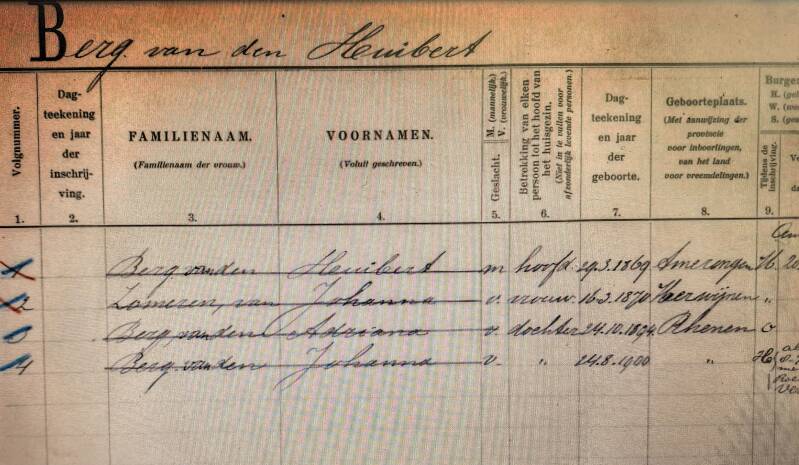 Berg van den Huibert
Volgnummer.
Dag-
teekening
en jaar
der
inschrij-
ving.
FAMILIENAAM.
(Familienaam der vrouw.)
VOORNAMEN.
(Voluit geschreven.)
Geslacht.
M. (mannelijk.)
V. (vrouwelijk.)
Betrekking van elken
persoon tot het hoofd van
het huisgezin.
(Niet in te vullen voor
afzonderlijk levende personen.)
Dag-
teekening
en jaar
der
geboorte.
Geboorteplaats.
(Met aanwijzing der
provincie
voor inboorlingen,
van het land
voor vreemdelingen.)
Burger
H. (ge
W. (we
S. (ge
Tijdens de
inschrijving.
Ve
da
1. 2. 3. 4. 5. 6. 7. 8. 9.
1 Berg van den Huibert m hoofd 29.3.1869 Amerongen H. 20
2 Zomeren, van Johanna v. vrouw 16-3.1870 Herwijnen "
3 Berg van den Adriana v dochter 24.10.1894 Rhenen O
4 Berg van den Johanna v. " 24.8.1900 " H